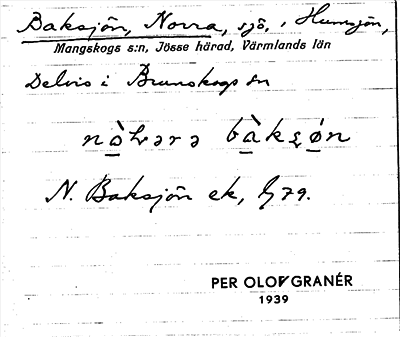 Baksjön, Norra, sjö, i Humsjön,
Mangskogs s:n, Jösse härad, Värmlands län
Delvis i Brunskogs sn
N. Baksjön ek, G79.
PER OLOF GRANÉR
1939